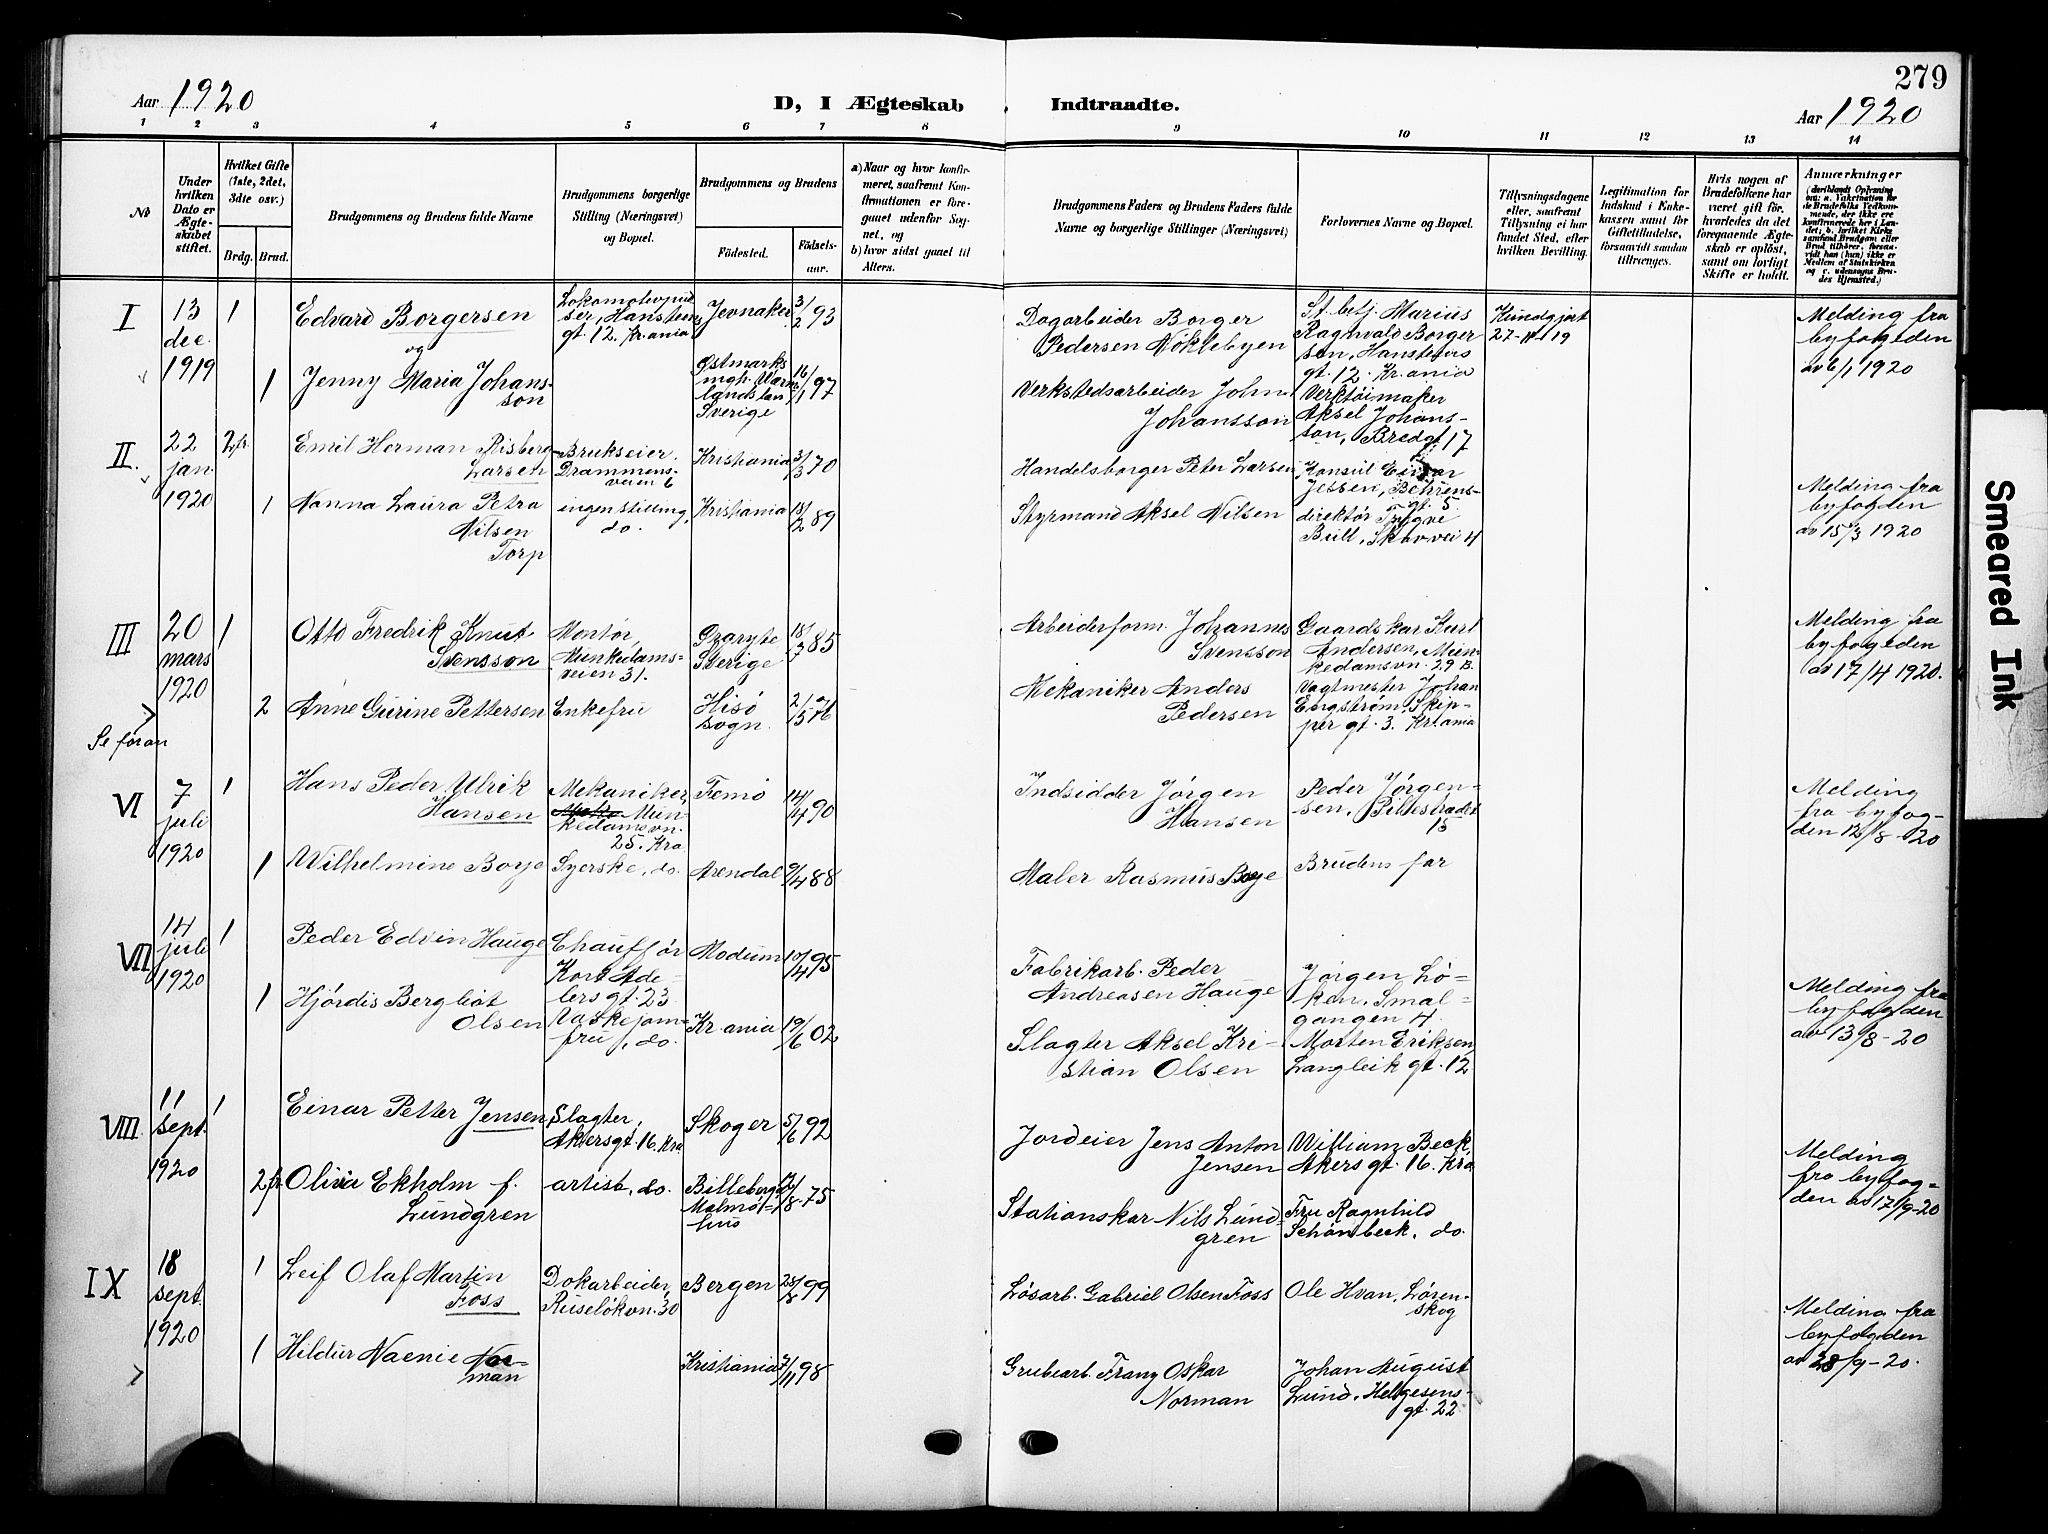 279
Aar 1920
D, I Ægteskab Indtraadte.
Aar 1920
1 2 3 4 5 6 7 8 9 10 11 12 13 14
Nr
Under hvilken Dato er Ægte-skabet stiftet.
Hvilket Gifte (1ste, 2det, 3dte osv.)
Brdg. Brud.
Brudgommens og Brudens fulde Navne
Brudgommens borgerlige Stilling (Næringsvei) og Bopæl.
Brudgommens og Brudens
Födested.
Födsels-aar.
a) Naar og hvor konfir-meret, saafremt Kon-firmationen er fore-gaaet udenfor Sog-net, og
b) hvor sidst gaaet til Alters.
Brudgommens Faders og Brudens Faders fulde Navne og borgerlige Stillinger (Næringsvei)
Forlovernes Navne og Bopæl.
Tillysningsdagene eller, saafremt Tillysning ei har fundet Sted, efter hvilken Bevilling.
Legitimation for Indskud i Enke-kassen samt for Giftetilladelse, forsaavidt saadan tiltrænges.
Hvis nogen af Brudefolkene har været gift för, hvorledes da det foregaaende Ægte-skab er oplöst, samt om lovligt Skifte er holdt.
Anmærkninger
I
13 dec. 1919
1
Edvard Borgersen
og
Lokomotivpud-
ser, Hansteens
gt. 12, Kr.ania
Jevnaker 3/2 93
Dagarbeider Borger
Pedersen Nøklebyen
St.betj. Marius
Ragnvald Borger
sen, Hansteens
gt. 12. Kr.ania
Kundgjort
27-11-19
Melding fra
byfogeden
av 6/1 1920
1
Jenny Maria Johans-
son
Østmarks
mgh. Værm
landslän
Sverige
16/1 97
Verkstedsarbeider John
Johansson
Verktøimaker
Aksel Johans-
son, Bredgt. 17
II.
22 jan. 1920
2 fr.
Emil Herman Risberg
Larsen
Brukseier,
Drammens-
veien 6
Kristiania 3/3 70
Handelsborger Peter Larsen
Konsul Einar
Jessen, Behrens-
gt. 5.
1
Nanna Laura Petra
Nilsen
Torp
ingen stilling,
do.
Kristiania 18/2 89
Styrmand Aksel Nilsen
direktør Trygve
Bull, Skovvei 4
Melding fra
byfogden
av 15/3 1920
III
20 mars 1920
1
Otto Fredrik Knut
Svensson
Montør,
Munkedams-
veien 31.
Sverige
18/7 85
Arbeiderform. Johannes
Svensson
Gaardskar Karl
Andersen, Mun-
kedamsvn. 29 B.
Melding fra
byfogeden
av 17/4 1920.
2
Anne Gurine Pettersen
Enkefru
Hisø
sogn.
2/5 76
Mekaniker Anders
Pedersen
Vagtmester Johan
Engstrøm, Skip-
per gt. 3. Kr.ania
Se foran
VI
7 juli 1920
1
Hans Peder Ulrik
Hansen
Mekaniker,
Mun-
kedamsvn.
25. Kra
Femø
14/4 90
Indsidder Jørgen
Hansen
Peder Jørgen-
sen, Pilestrædet
15
Melding
fra byfog-
den 12/8-20
1
Wilhelmine Boye
Syerske, do.
Arendal 9/4 88
Maler Rasmus Boye
Brudens far
VII
14 juli 1920
1
Peder Edvin Hauge
Chauffør
Kort Ade-
lersgt. 23
Modum 10/4 95
Fabrikarb. Peder
Andreasen Hauge
Jørgen Lø-
ken, Smal-
gangen 4.
Melding fra
byfogden
av 13/8-20
1
Hjørdis Bergliot
Olsen
Vaskejom-
fru, do.
Kr.ania 19/6 02
Slagter Aksel Kri-
stian Olsen
Morten Eriksen,
Langleik gt. 12
VIII.
11 sept. 1920
1
Einar Petter Jensen
Slagter,
Akersgt. 16. Kra
Skoger 5/6 92
Jordeier Jens Anton
Jensen
William Beck,
Akersgt. 16. Kra
Melding
fra byfog-
den av 17/9-20
2 fr.
Olivia Ekholm f.
Lundgren
artist, do.
Billeberga
Malmø-
hus
75
Stationskar Nils Lund-
gren
Fru Ragnhild
Schønbeck, do.
IX
18 sept. 1920
1
Leif Olaf Martin
Foss
Dokarbeider,
Ruseløkvn. 30
Bergen 28/8 99
Løsarb. Gabriel Olsen Foss
Ole Hvan, Løren-
skog
Melding fra
byfogden
av 28/9-20.
1
Hildur Naenie Nor-
man
Kristiania 7/11 98
Grubearb. Franz Oskar
Norman
Johan August
Lund, Helgesens-
gt. 22
Smeared Ink